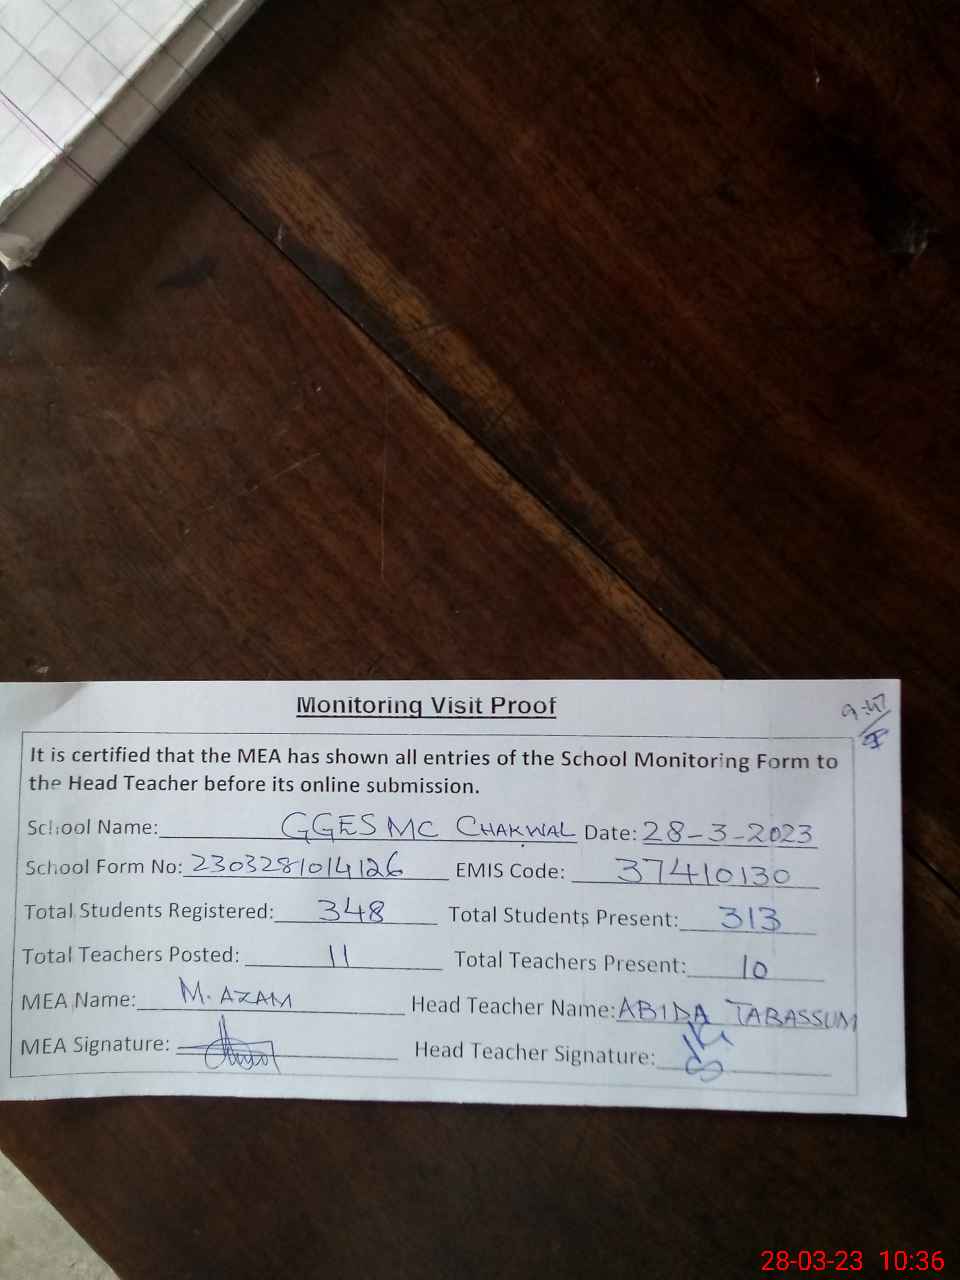 Monitoring Visit Proof
9:47
It is certified that the MEA has shown all entries of the School Monitoring Form to
the Head Teacher before its online submission.
School Name: GGES MC CHAKWAL Date: 28-3-2023
School Form No: 2303281014126 EMIS Code: 37410130
Total Students Registered: 348 Total Students Present: 313
Total Teachers Posted: 11 Total Teachers Present: 10
MEA Name: M. AZAM Head Teacher Name: ABIDA TABASSUM
MEA Signature: Head Teacher Signature:
28-03-23 10:36